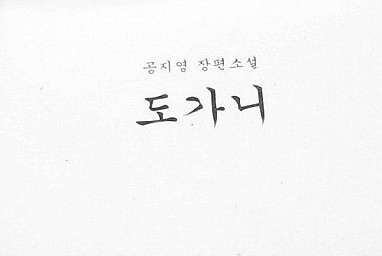 공지영 장편소설
도가니